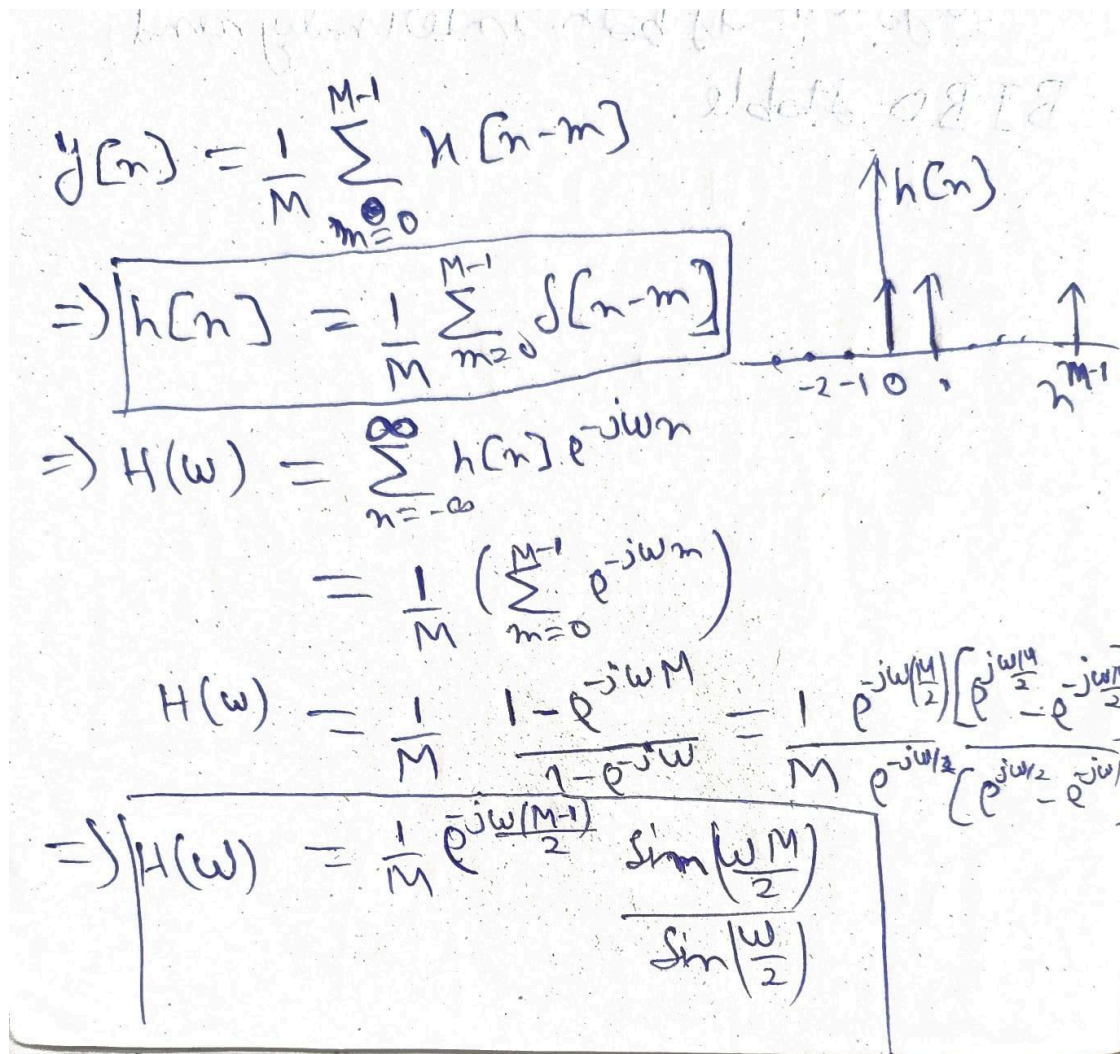 BIBO stable
y[n] = 1/M ∑_{m=0}^{M-1} x[n-m]
h[n]
=> h[n] = 1/M ∑_{m=0}^{M-1} δ[n-m]
-2 -1 0 M-1
n
=> H(ω) = ∑_{n=-∞}^{∞} h[n] e^{-jωn}
= 1/M ( ∑_{m=0}^{M-1} e^{-jωm} )
H(ω) = 1/M (1-e^{-jωM})/(1-e^{-jω}) = 1/M e^{-jω(M/2)} [e^{jωM/2} - e^{-jωM/2}] / e^{-jω/2} [e^{jω/2} - e^{-jω/
=> H(ω) = 1/M e^{-jω(M-1)/2} Sin(ωM/2) / Sin(ω/2)